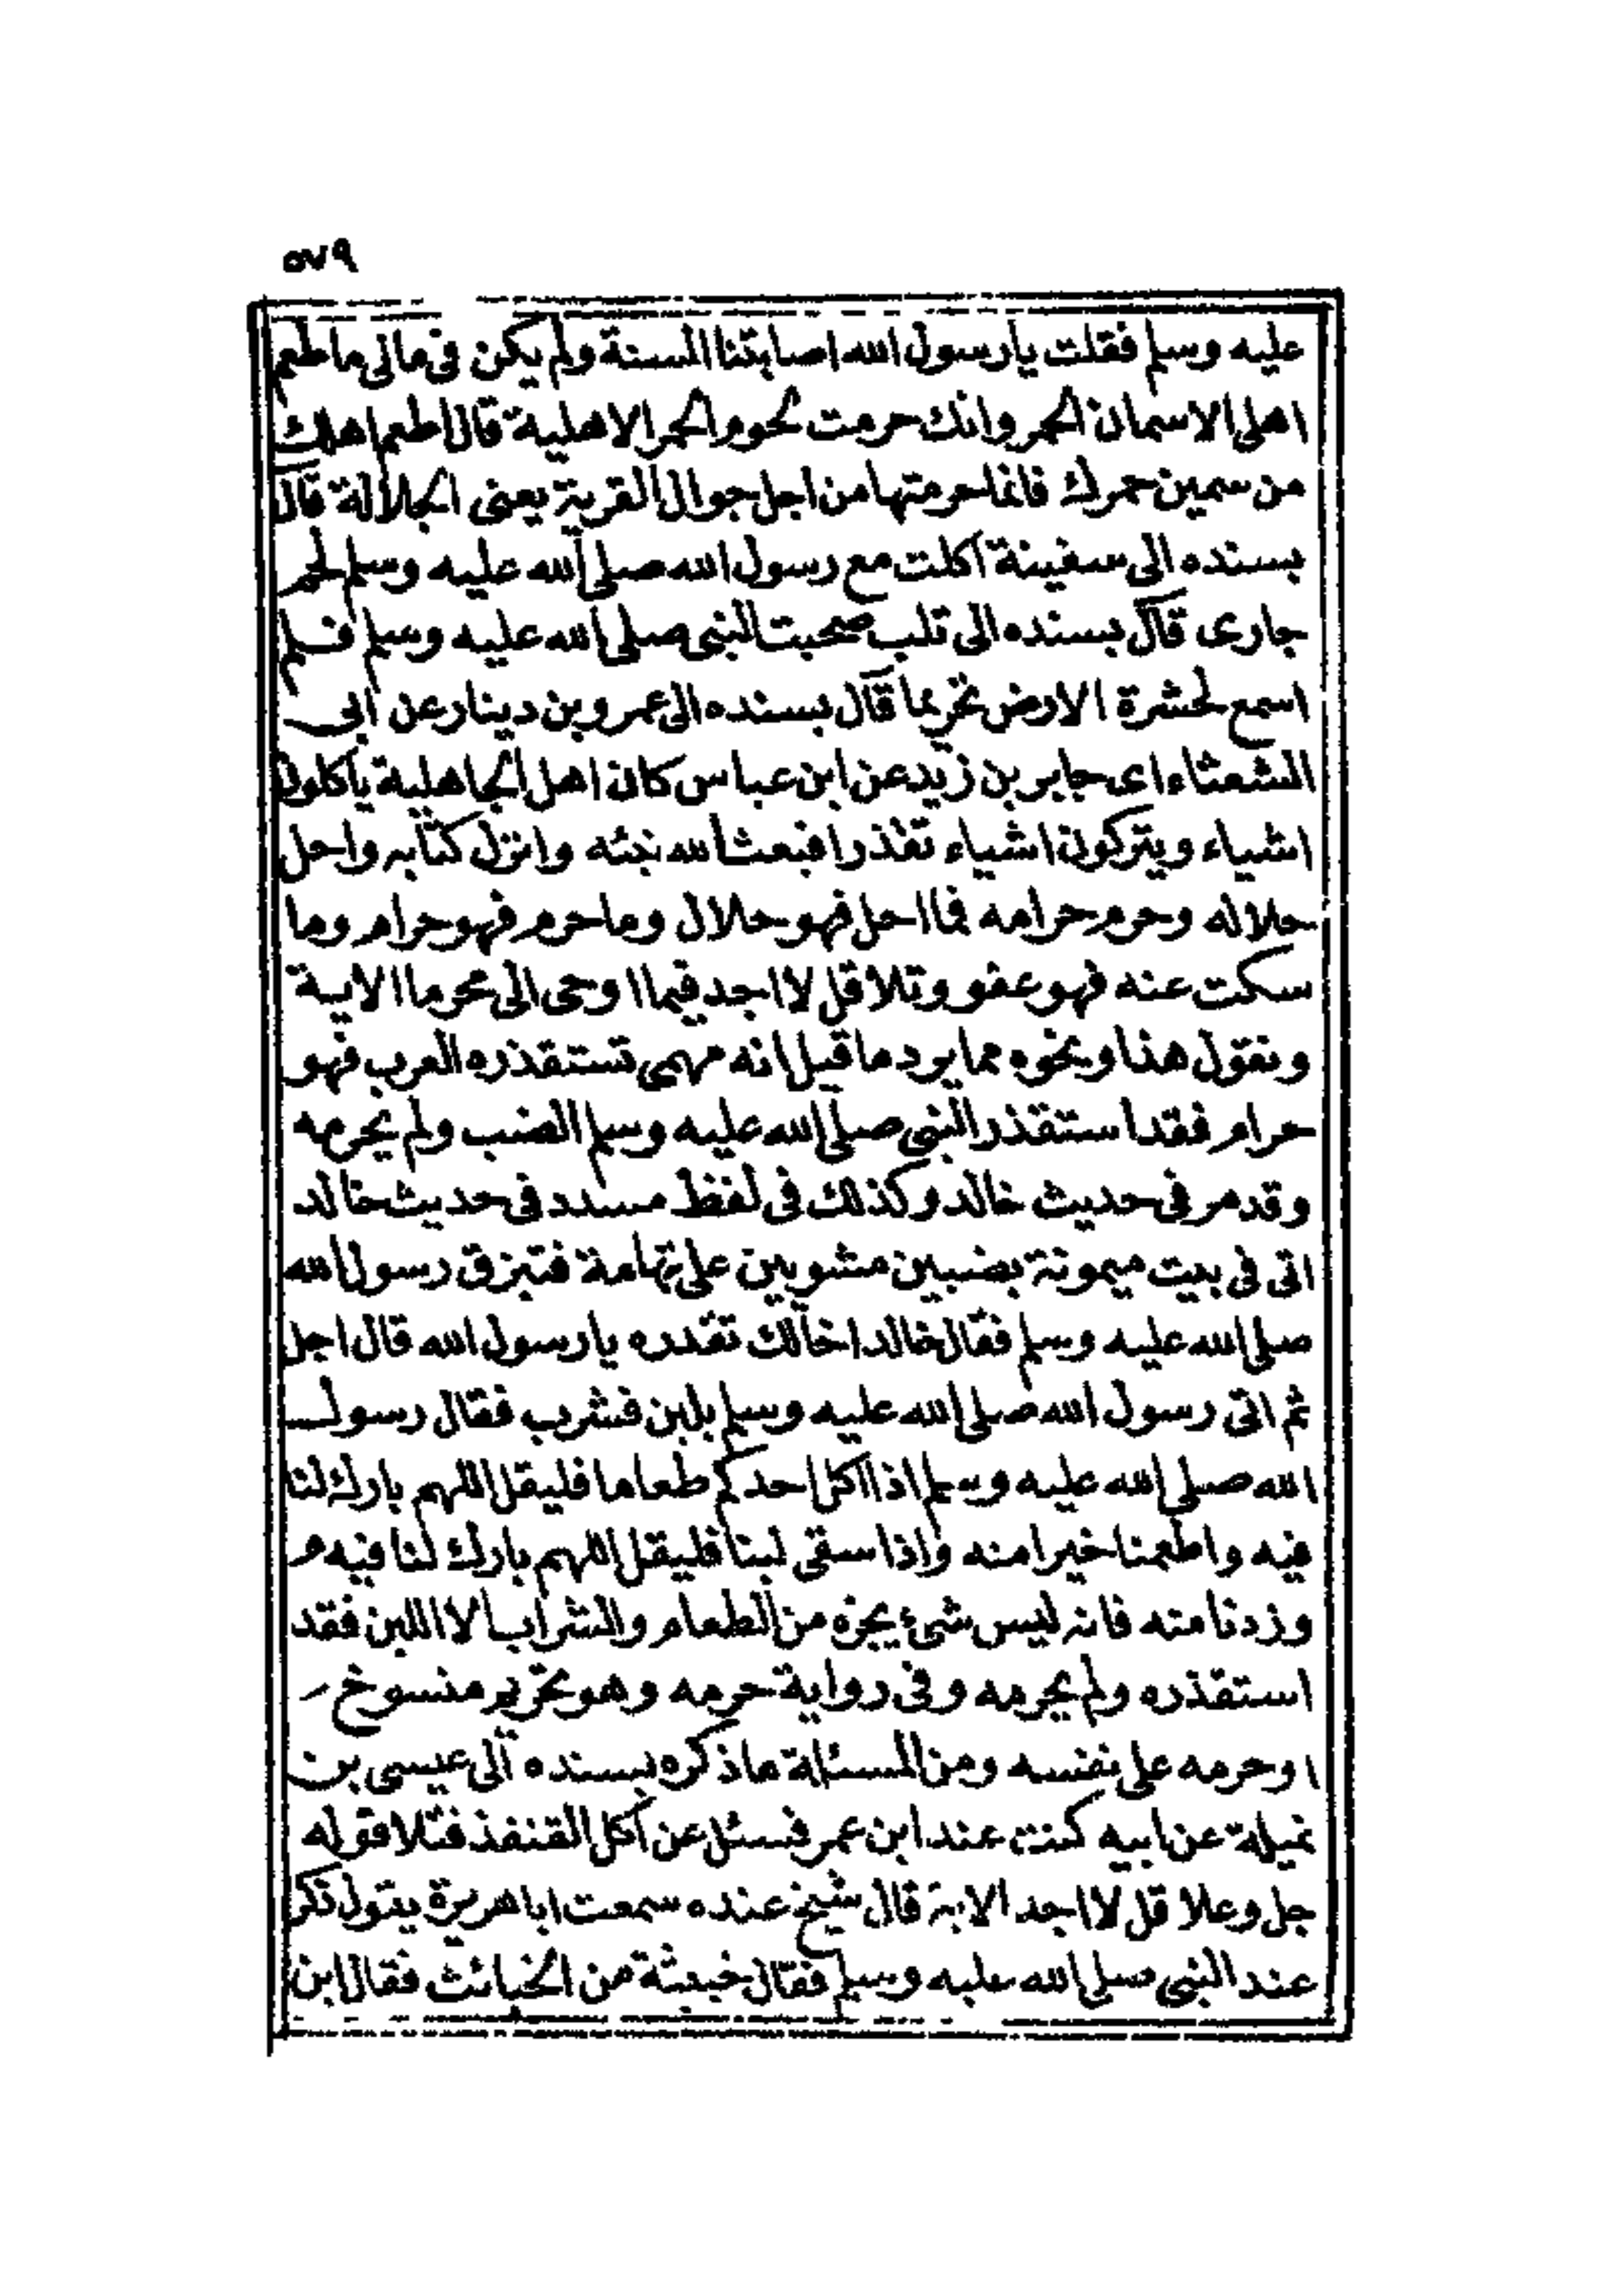 ٥٧٩
عليه وسلم فقلت يارسول الله اصابتنا السنة ولم يكن فى مالى ما اطعم
اهلى الا سمان الحمر وانك حرمت لحوم الحمر الاهلية قال اطعم اهلك
من سمين حمرك فانما حرمتها من اجل جوال القرية يعنى الجلالة قال
بسنده الى سفينة اكلت مع رسول الله صلى الله عليه وسلم لحم
جارى قال بسنده الى تلب صحبت النبى صلى الله عليه وسلم فلم
اسمع لحشرة الارض تحريما قال بسنده الى عمرو بن دينار عن ابى
الشعثاء اى جابر بن زيد عن ابن عباس كان اهل الجاهلية ياكلون
اشياء ويتركون اشياء تقذرا فبعث الله نبئه وانزل كتابه واحل
حلاله وحرم حرامه فما احل فهو حلال وما حرم فهو حرام وما
سكت عنه فهو عفو وتلا قل لا اجد فيما اوحى الى محرما الاية
ونقول هذا ونحوه مما يرد ما قيل انه مهمى تستقذره العرب فهو
حرام فقد استقذر النبى صلى الله عليه وسلم الضب ولم يحرمه
وقد مر فى حديث خالد وكذلك فى لفظ مسدد فى حديث خالد
اتى فى بيت ميمونة بضبين مشويين على تهامة فتبزق رسول الله
صلى الله عليه وسلم فقال خالد اخالك تقدره يارسول الله قال اجل
ثم اتى رسول الله صلى الله عليه وسلم بلبن فشرب فقال رسول
الله صلى الله عليه وسلم اذا اكل احدكم طعاما فليقل اللهم بارك لنا
فيه واطعمنا خيرا منه واذا سقى لبنا فليقل اللهم بارك لنا فيه
وزدنا منه فانه ليس شئ يجزه من الطعام والشراب الا اللبن فقد
استقذره ولم يحرمه وفى رواية حرمه وهو تحريم منسوخ
او حرمه على نفسه ومن المسئلة ما ذكره بسنده الى عيسى بن
نميلة عن ابيه كنت عند ابن عمر فسئل عن اكل القنفذ فتلا قوله
جل وعلا قل لا اجد الاية قال شيخ عنده سمعت ابا هريرة يقول ذكر
عند النبى صلى الله عليه وسلم فقال خبيثة من الخبائث فقال ابن